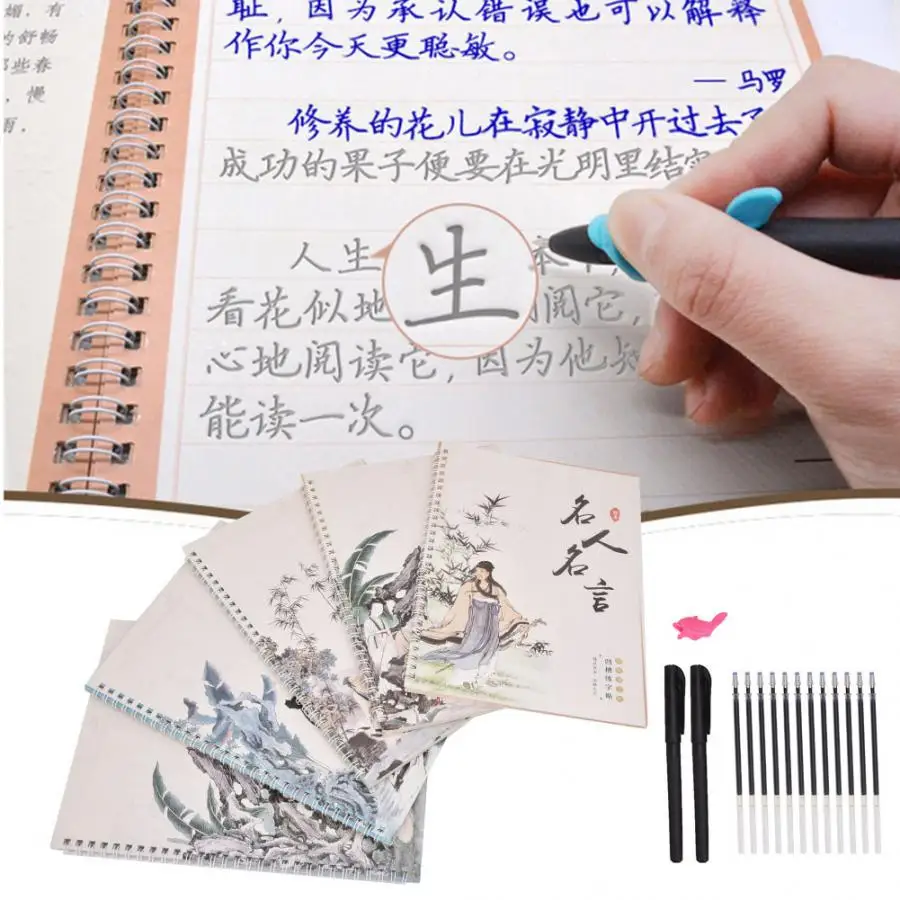 媚，有
的舒畅
那些春
，慢
雨，
耻，因为承认错误也可以解释
作你今天更聪敏。
— 马罗
修养的花儿在寂静中开过去了
成功的果子便要在光明里结实
人生
生
看花似地 阅它，
心地阅读它，因为他知
能读一次。
名人
名言
凹槽练字帖